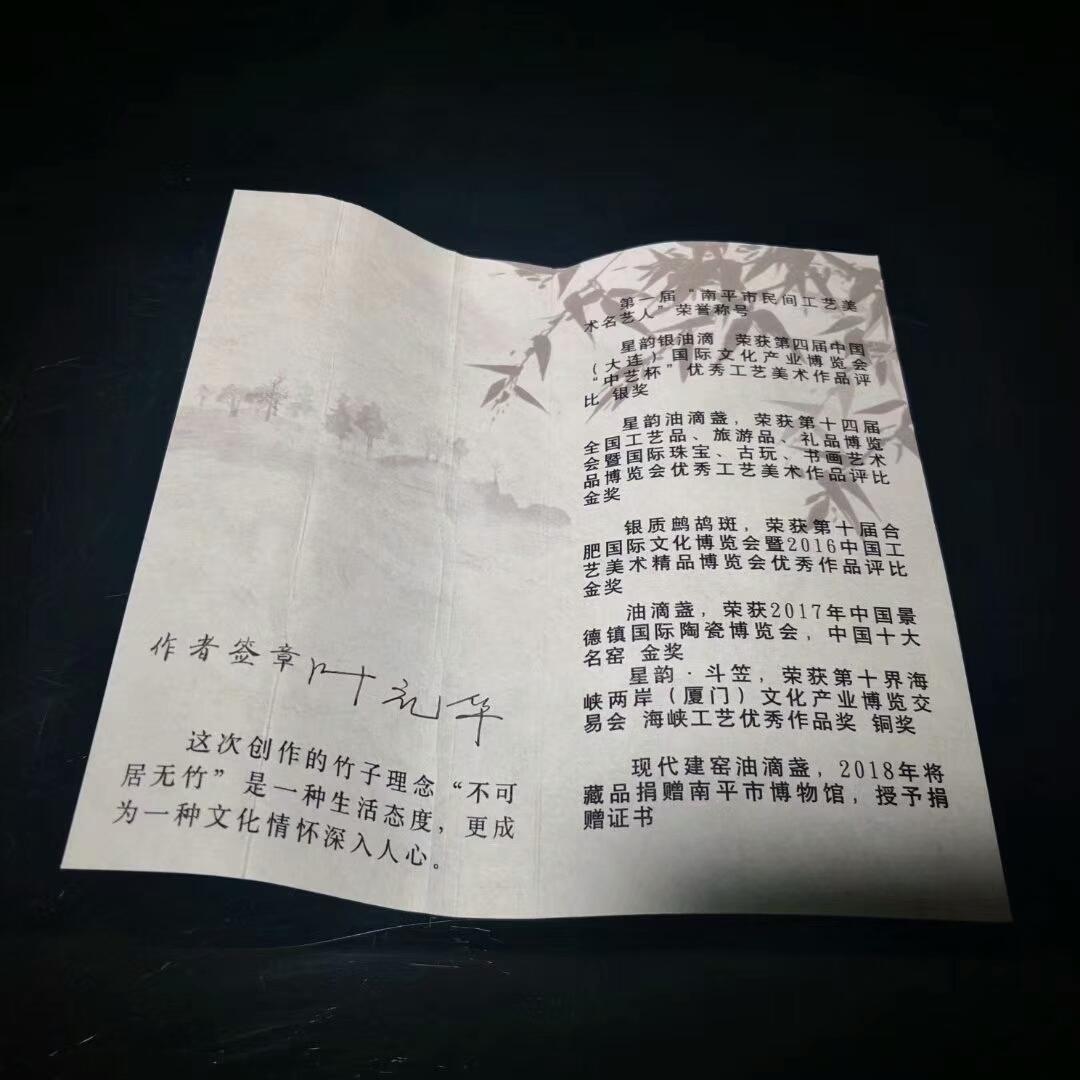 作者签章叶礼华
这次创作的竹子理念“不可
居无竹”是一种生活态度，更成
为一种文化情怀深入人心。
第一届“南平市民间工艺美
术名艺人”荣誉称号
星韵银油滴 荣获第四届中国
（大连）国际文化产业博览会
“中艺杯”优秀工艺美术作品评
比 银奖
星韵油滴盏，荣获第十四届
全国工艺品、旅游品、礼品博览
会暨国际珠宝、古玩、书画艺术
品博览会优秀工艺美术作品评比
金奖
银质鹧鸪斑，荣获第十届合
肥国际文化博览会暨2016中国工
艺美术精品博览会优秀作品评比
金奖
油滴盏，荣获2017年中国景
德镇国际陶瓷博览会，中国十大
名窑 金奖
星韵·斗笠，荣获第十界海
峡两岸（厦门）文化产业博览交
易会 海峡工艺优秀作品奖 铜奖
现代建窑油滴盏，2018年将
藏品捐赠南平市博物馆，授予捐
赠证书